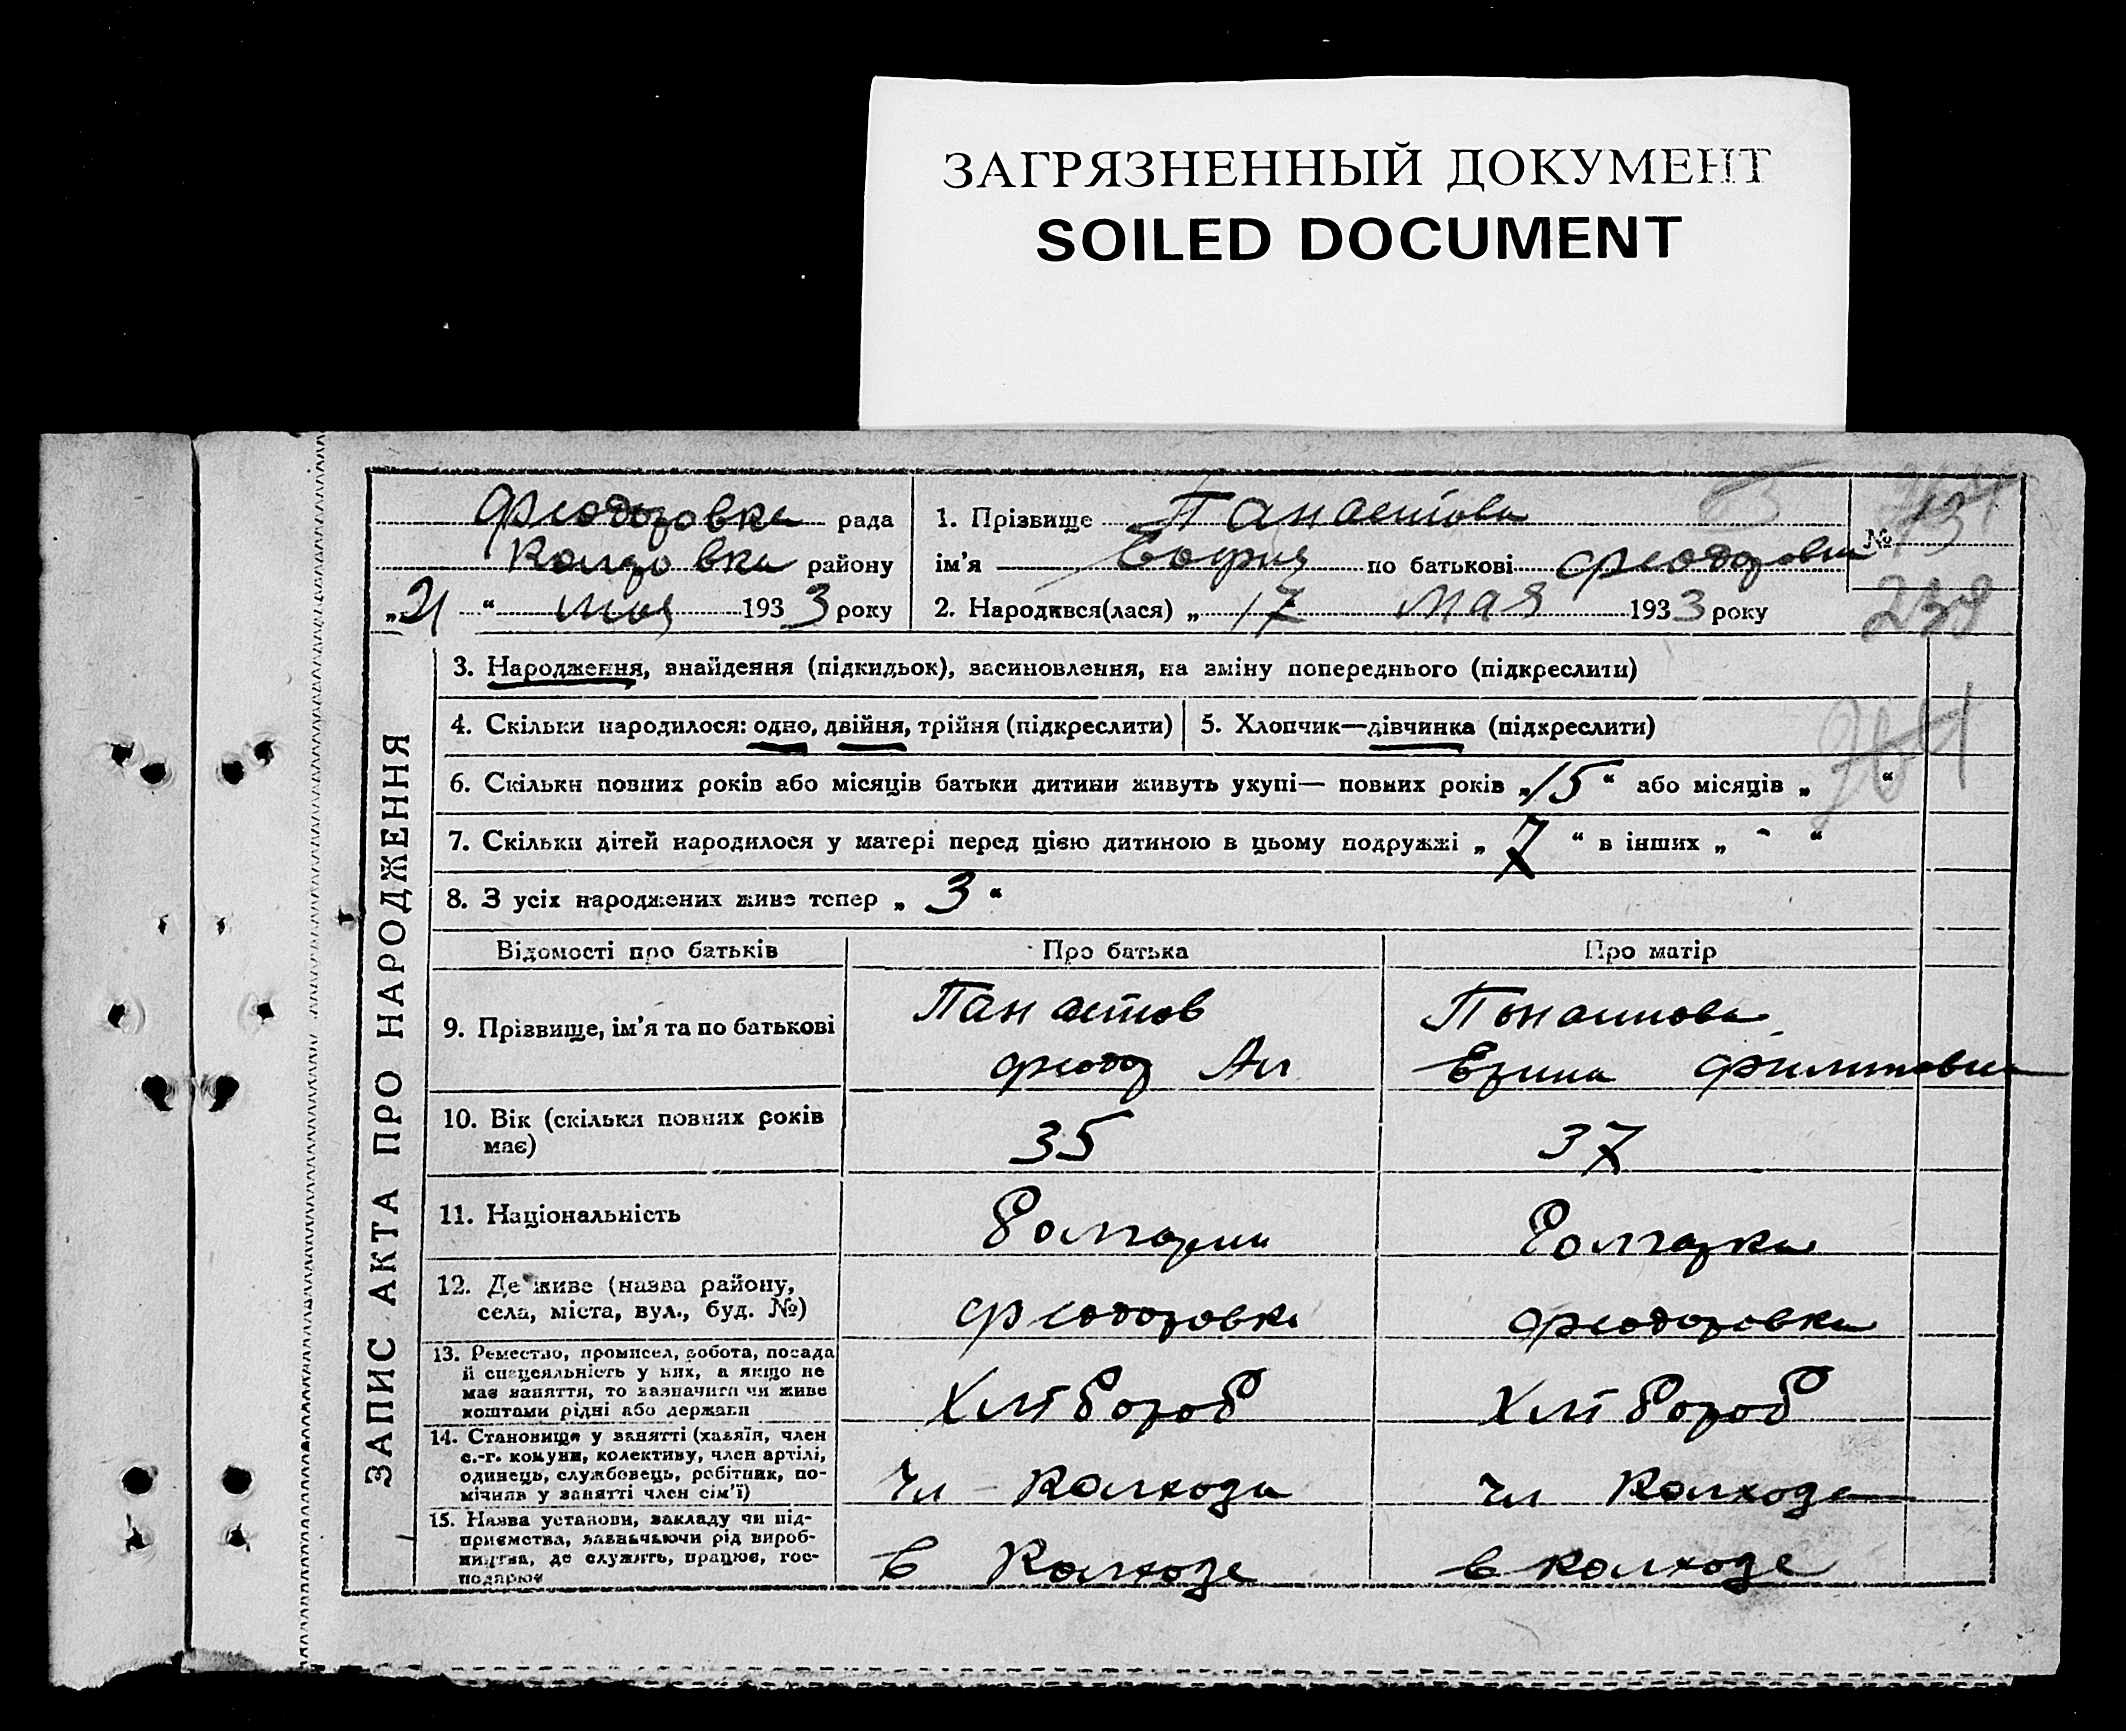 ЗАГРЯЗНЕННЫЙ ДОКУМЕНТ
SOILED DOCUMENT
Феодоровка рада
району
„21“ мая 1933 року
1. Прізвище Панаетова
ім'я София по батькові Феодоровн
2. Народився(лася) „17 мая 1933 року
№ 13
238
ЗАПИС АКТА ПРО НАРОДЖЕННЯ
3. Народження, знайдення (підкидьок), засиновлення, на зміну попереднього (підкреслити)
4. Скільки народилося: одно, двійня, трійня (підкреслити)
5. Хлопчик—дівчинка (підкреслити)
6. Скільки повних років або місяців батьки дитини живуть укупі— повних років „15“ або місяців „ “
7. Скільки дітей народилося у матері перед цією дитиною в цьому подружжі „7“ в інших „ - “
8. З усіх народжених живе тепер „3“
Відомості про батьків
Про батька
Про матір
9. Прізвище, ім'я та по батькові
Панаетов
Феод Ал
Панаитова
10. Вік (скільки повних років
має)
35
37
11. Національність
Болгарин
Болгарка
12. Де живе (назва району,
села, міста, вул., буд. №)
Феодоровка
Феодоровка
13. Ремество, промисел, робота, посада
й спецеяльність у них, а якщо не
має заняття, то зазначити чи живе
коштами рідні або держави
Хлібороб
Хлібороб
14. Становище у занятті (хазяїн, член
с.-г. комуни, колективу, член артілі,
одинець, службовець, робітник, по-
мічняв у занятті член сім'ї)
Чл Колхоза
чл Колхоза
15. Назва установи, закладу чи під-
приємства, зазначаючи рід вироб-
ництва, де служить, працює, гос-
подарює
в Колхозе
в колхозе